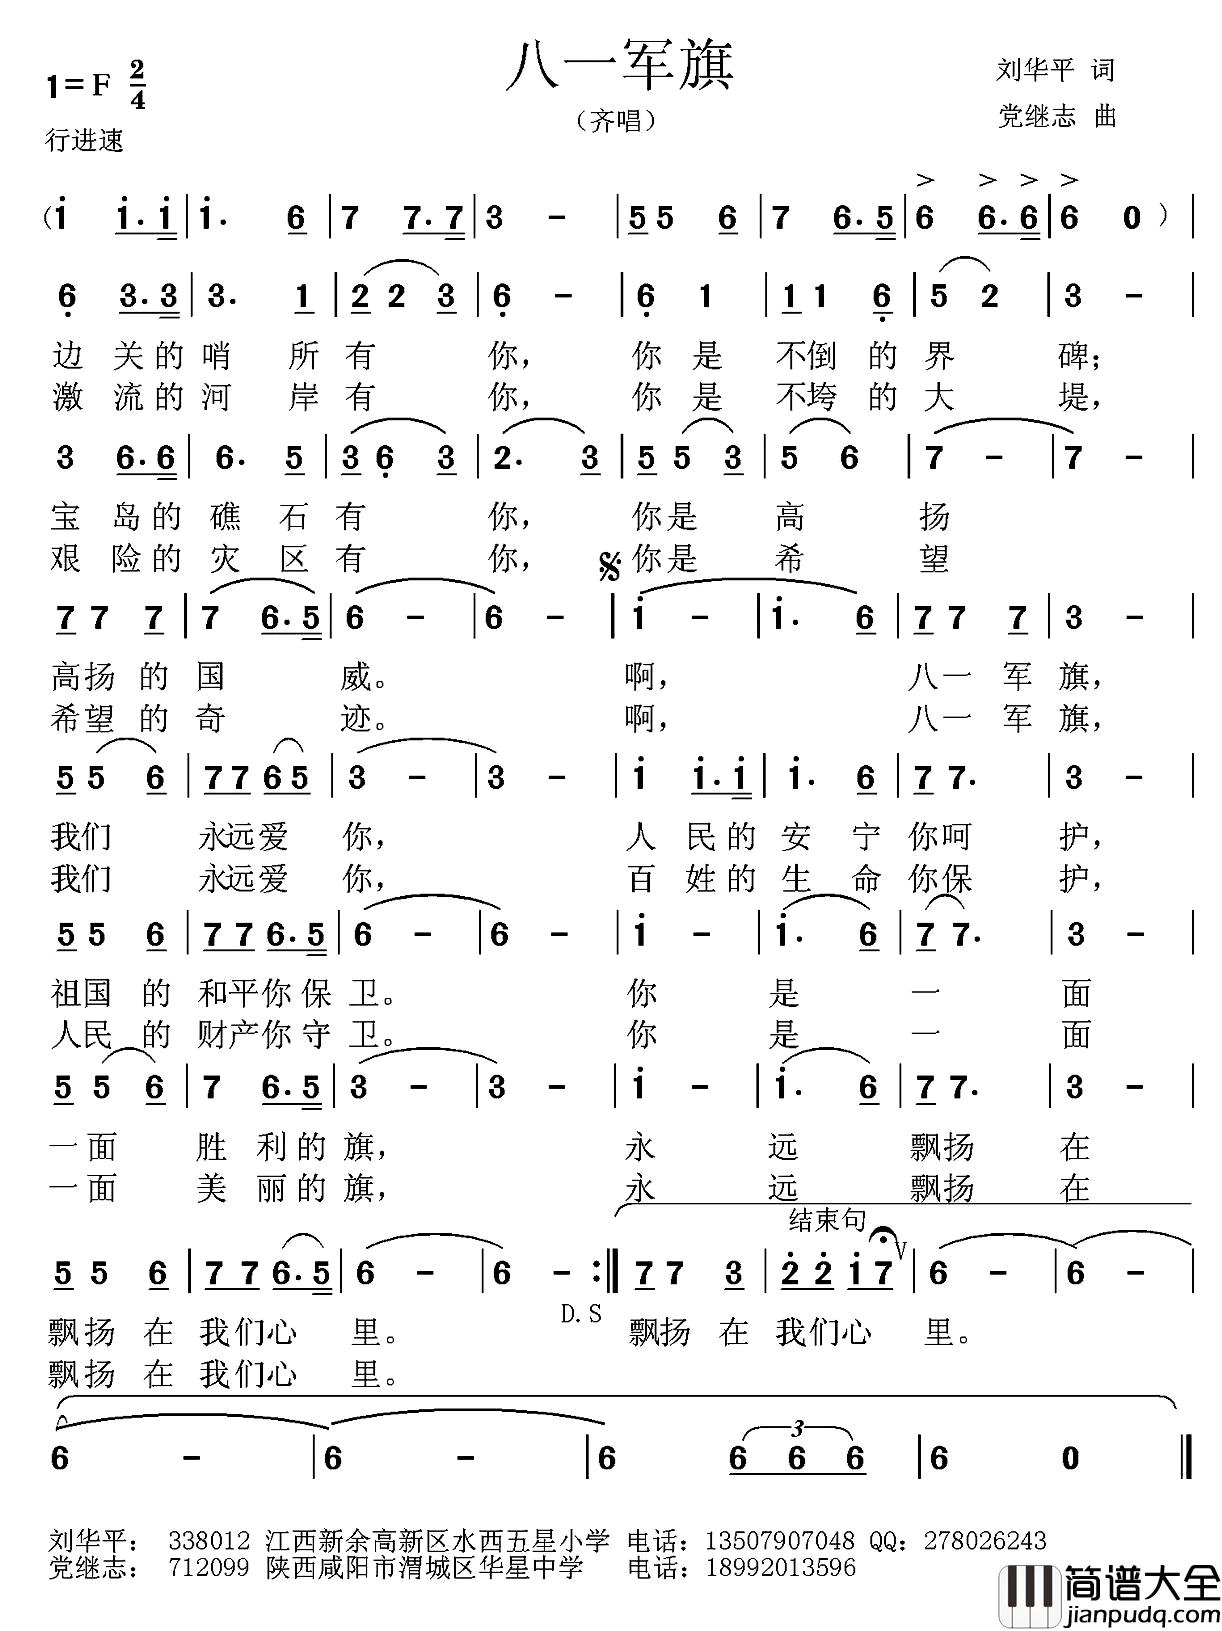 八一军旗
1=F 2/4
刘华平 词
（齐唱）
党继志 曲
行进速
（i i. i | i. 6 | 7 7. 7 | 3 - | 5 5 6 | 7 6. 5 | 6 6. 6 | 6 0 ）|
6 3. 3 | 3. 1 | 2 2 3 | 6 - | 6 1 | 1 1 6 | 5 2 | 3 - |
边 关 的 哨 所 有 你， 你 是 不倒 的 界 碑；
激 流 的 河 岸 有 你， 你 是 不垮 的 大 堤，
3 6. 6 | 6. 5 | 3 6 3 | 2. 3 | 5 5 3 | 5 6 | 7 - | 7 - |
宝 岛 的 礁 石 有 你， 你是 高 扬
艰 险 的 灾 区 有 你， 你是 希 望
7 7 7 | 7 6. 5 | 6 - | 6 - | i - | i. 6 | 7 7 7 | 3 - |
高扬 的 国 威。 啊， 八一 军 旗，
希望 的 奇 迹。 啊， 八一 军 旗，
5 5 6 | 7 7 6 5 | 3 - | 3 - | i i. i | i. 6 | 7 7. | 3 - |
我们 永远爱 你， 人 民 的 安 宁 你呵 护，
我们 永远爱 你， 百 姓 的 生 命 你保 护，
5 5 6 | 7 7 6. 5 | 6 - | 6 - | i - | i. 6 | 7 7. | 3 - |
祖国 的 和平你 保 卫。 你 是 一 面
人民 的 财产你 守 卫。 你 是 一 面
5 5 6 | 7 6. 5 | 3 - | 3 - | i - | i. 6 | 7 7. | 3 - |
一面 胜 利 的 旗， 永 远 飘扬 在
一面 美 丽 的 旗， 永 远 飘扬 在
结束句
5 5 6 | 7 7 6. 5 | 6 - | 6 - :‖ 7 7 3 | 2 2 i 7 V | 6 - | 6 - |
D.S
飘扬 在 我们心 里。 飘扬 在 我们心 里。
飘扬 在 我们心 里。
3
6 - | 6 - | 6 6 6 6 | 6 0 ‖
刘华平： 338012 江西新余高新区水西五星小学 电话：13507907048 QQ：278026243
党继志： 712099 陕西咸阳市渭城区华星中学 电话：18992013596
简谱大全
jianpudq.com